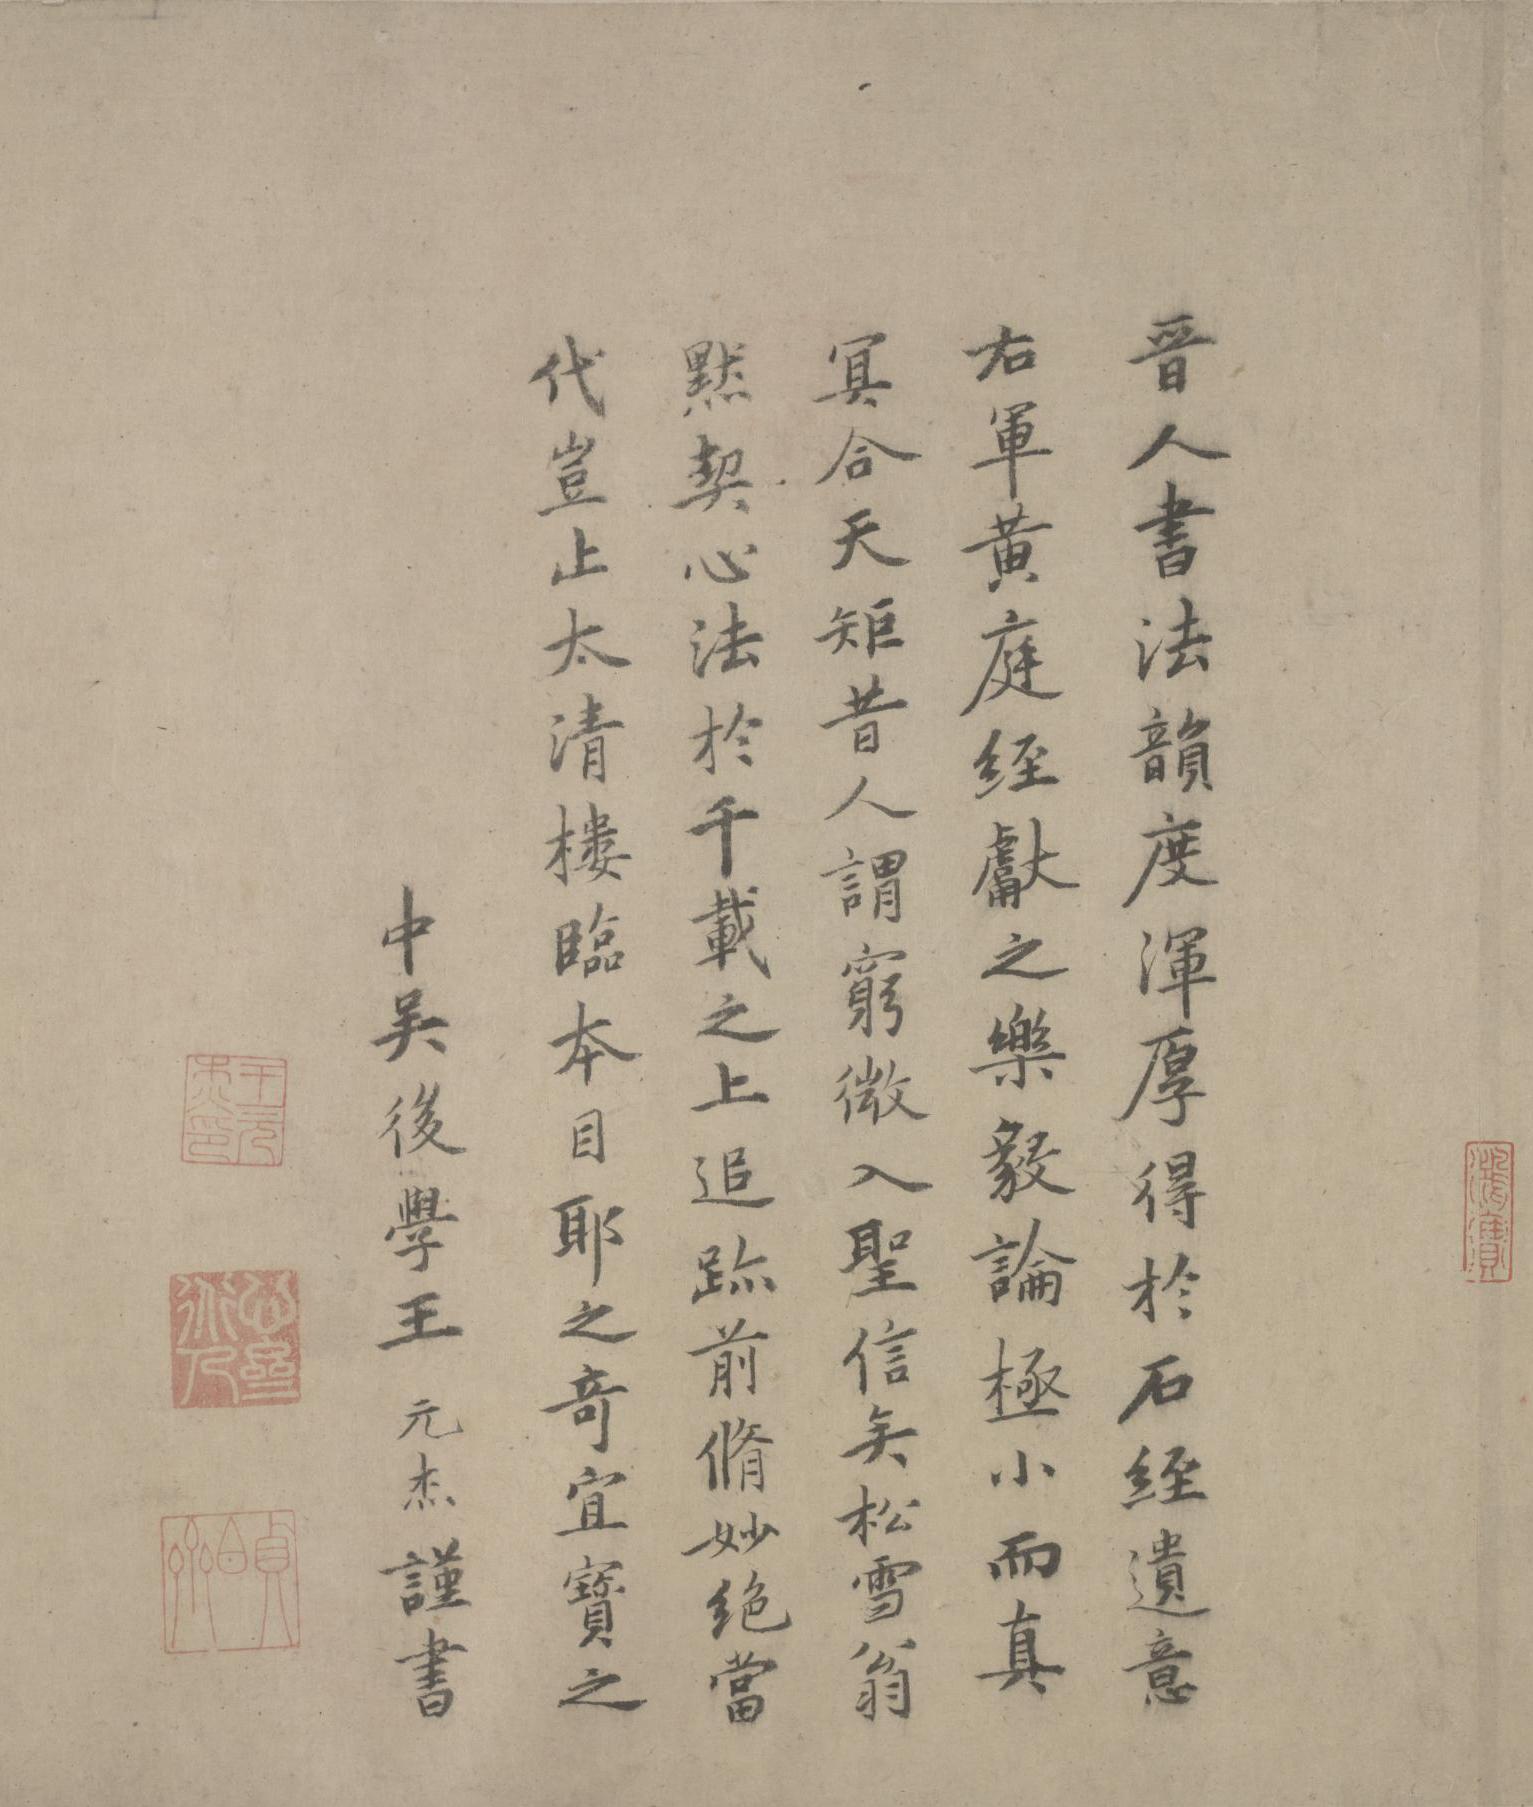 晉人書法韻度渾厚得於石經遺意
右軍黃庭經獻之樂毅論極小而真
冥合天矩昔人謂窮微入聖信矣松雪翁
黙契心法於千載之上追跡前脩妙絶當
代豈止太清樓臨本目耶之奇宜寶之
中吳後學王元杰謹書